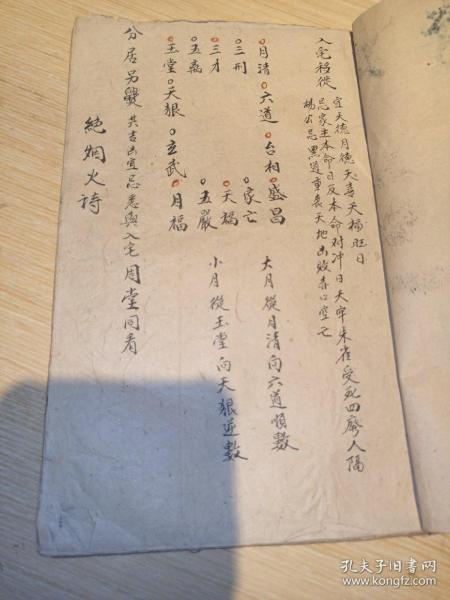 入宅移徙
宜天德月德天喜天福旺日
忌家主本命日反本命对冲日天牢朱雀受死四廢人隔
楊公忌黑道重丧天地凶敗赤口空亡
月清 六道 台相 盛昌
三刑 家亡
三才 天福
五
玉堂 天狠 玄武 月福
大月從月清向六道順數
小月從玉堂向天狠逆數
分居另爨 其吉凶宜忌悉與入宅周堂同看
絕烟火詩
孔夫子旧书网
www.kongfz.com